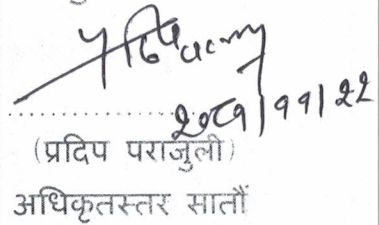 २०८१|११|२२
(प्रदिप पराजुली)
अधिकृतस्तर सातौं